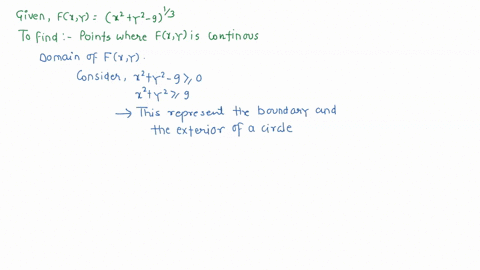 Given, F(x,y) = (x²+y²-9)^1/3
To find :- Points where F(x,y) is continous
Domain of F(x,y).
Consider, x²+y²-9 ≥ 0
x²+y² ≥ 9
→ This represent the boundary and
the exterior of a circle